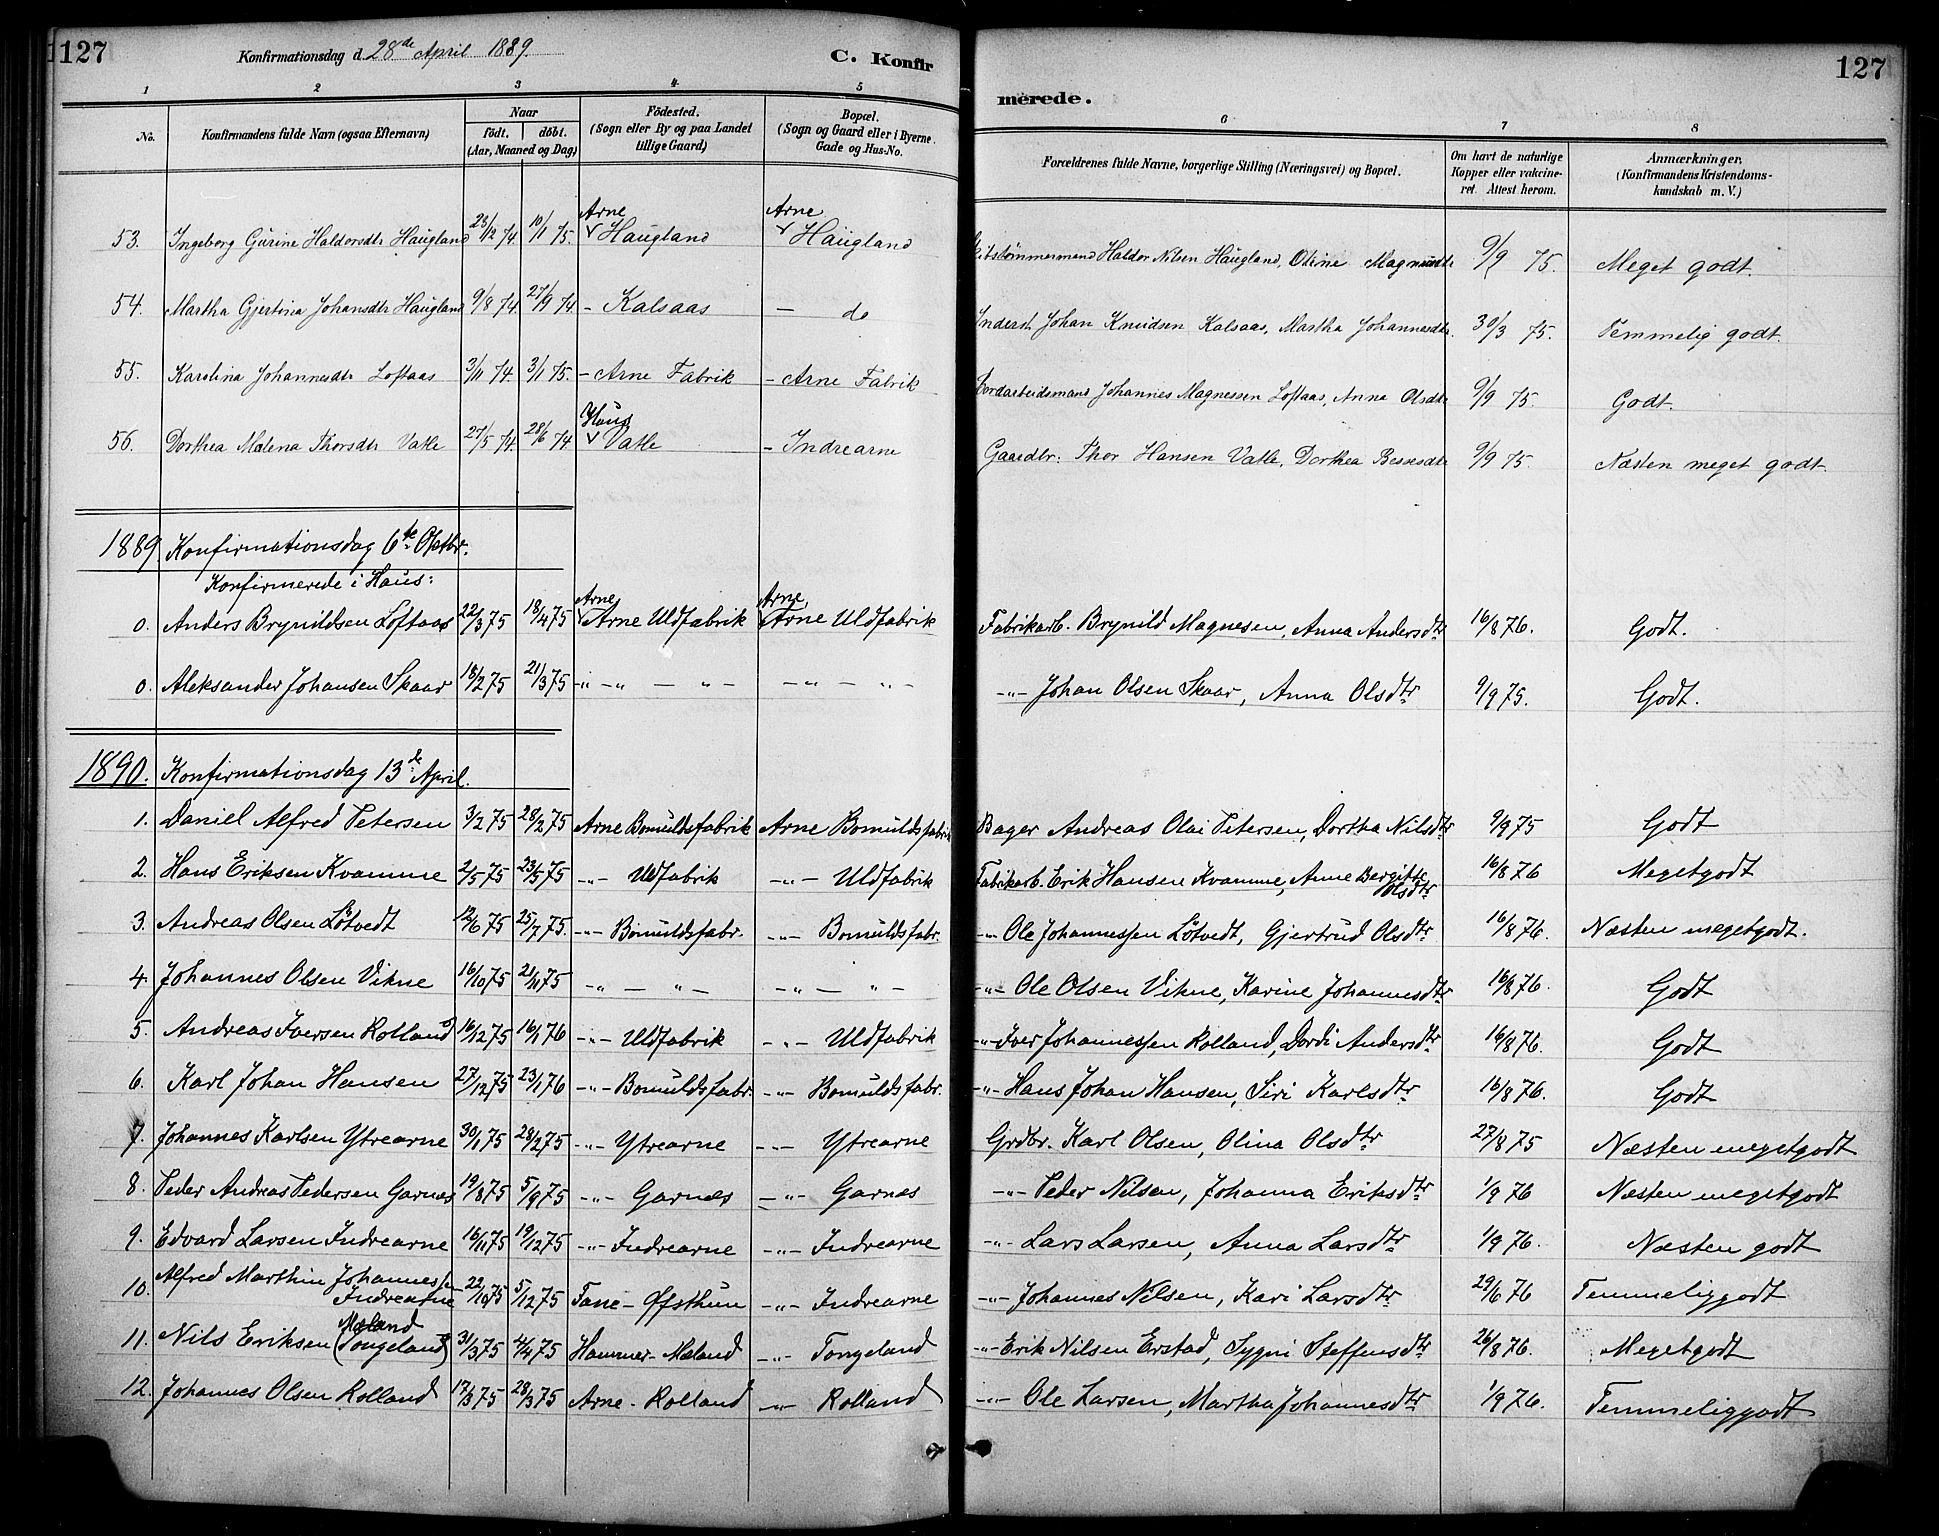 127
Konfirmationsdag d. 28de April 1889.
C. Konfir
merede.
127
1 2 3 4 5 6 7 8
No.
Konfirmandens fulde Navn (ogsaa Efternavn)
Naar
födt. döbt.
(Aar, Maaned og Dag)
Födested.
(Sogn eller By og paa Landet
tillige Gaard)
Bopæl.
(Sogn og Gaard eller i Byerne
Gade og Hus-No.
Forældrenes fulde Navne, borgerlige Stilling (Næringsvei) og Bopæl.
Om havt de naturlige
Kopper eller vakcine-
ret. Attest herom.
Anmærkninger,
(Konfirmandens Kristendoms-
kundskab m. V.)
Arne Arne
53. Ingeborg Gurine Haldorsdtr Haugland 23/12 74. 10/1 75. Haugland Haugland Haldor Nilsen Haugland, Oline Magnusdtr 9/9 75. Meget godt.
54. Martha Gjertina Johansdtr Haugland 9/8 74 27/9 74 - Kalsaas - do Inderst Johan Knudsen Kalsaas, Martha Johannesdtr. 30/3 75. Temmelig godt.
55. Karolina Johannesdtr Loftaas 3/11 74. 3/1 75. - Arne Fabrik - Arne Fabrik Johannes Magnessen Loftaas, Anna Olsdtr 9/9 75. Godt.
Haus
56. Dorthea Malena Thorsdtr Vatle 27/5 74. 28/6 74 Vatle - Indrearne Gaardbr: Thor Hansen Vatle, Dorthea Bessesdtr 9/9 75. Næsten meget godt.
1889. Konfirmationsdag 6te Oktbr.
Konfirmerede i Haus:
Arne Arne
0. Anders Brynildsen Loftaas 22/3 75 18/4 75 Arne Uldfabrik Arne Uldfabrik Fabrikarb. Brynild Magnesen, Anna Andersdtr 16/8 76. Godt.
0. Aleksander Johansen Skaar 18/2 75 21/3 75 -"- " - " - - " - " - -"- Johan Olsen Skaar, Anna Olsdtr 9/9 75. Godt.
1890. Konfirmationsdag 13de April.
1. Daniel Alfred Petersen 3/2 75 28/2 75 Arne Bomuldsfabrik Arne Bomuldsfabrik Bager Andreas Olai Petersen, Dortha Nilsdtr 9/9 75 Godt
2. Hans Eriksen Kvamme 2/5 75 23/5 75 -"- Uldfabrik -"- Uldfabrik Fabrikarb. Erik Hansen Kvamme, Anne Bergitte Olsdtr 16/8 76 Megetgodt
3. Andreas Olsen Løtvedt 12/6 75 25/7 75. -"- Bomuldsfabr. -"- Bomuldsfabr. -"- Ole Johannessen Løtvedt, Gjertrud Olsdtr 16/8 76. Næsten megetgodt.
4. Johannes Olsen Vikne 16/10 75 21/11 75 -"- " - -"- " - -"- Ole Olsen Vikne, Karine Johannesdtr 16/8 76. Godt
5. Andreas Iversen Rolland 16/12 75 16/1 76 -"- Uldfabrik -"- Uldfabrik -"- Iver Johannessen Rolland, Dordi Andersdtr 16/8 76. Godt
6. Karl Johan Hansen 27/12 75 23/1 76 -"- Bomuldsfabr. -"- Bomuldsfabr. -"- Hans Johan Hansen, Siri Karlsdtr 16/8 76. Godt
7. Johannes Karlsen Ytrearne 30/1 75 28/2 75 -"- Ytrearne -"- Ytrearne Grdbr. Karl Olsen, Olina Olsdtr 27/8 75 Næsten megetgodt
8. Peder Andreas Pedersen Garnæs 19/8 75 5/9 75 -"- Garnæs -"- Garnæs -"- Peder Nilsen, Johanna Eriksdtr 1/9 76 Næsten megetgodt
9. Edvard Larsen Indrearne 16/11 75 19/12 75 -"- Indrearne -"- Indrearne -"- Lars Larsen, Anna Larsdtr 1/9 76. Næsten godt
10. Alfred Marthin Johannessen Indrearne 22/10 75 5/12 75 Fane - Øfsthun -"- Indrearne -"- Johannes Nilsen, Kari Larsdtr 29/6 76 Temmeliggodt
11. Nils Eriksen Mæland (Tongeland) 31/3 75 4/4 75 Hammer - Mæland -"- Tongeland -"- Erik Nilsen Erstad, Sygni Steffensdtr 26/8 76. Megetgodt
12. Johannes Olsen Rolland 17/3 75 28/3 75 Arne - Rolland -"- Rolland -"- Ole Larsen, Martha Johannesdtr 1/9 76. Temmeliggodt